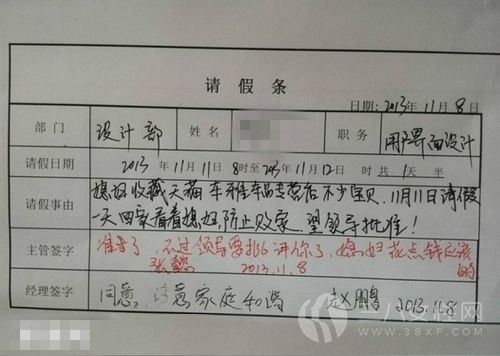 请假条
日期：2013年11月8日
部门 设计部 姓名 职务 用户界面设计
请假日期 2013年11月11日8时至2013年11月12日 时共1天半
请假事由 媳妇收藏天猫车 车品专营店不少宝贝，11月11日请假
一天回家看着媳妇，防止败家，望领导批准！
主管签字 准了，不过领导要批评你了，媳妇花点钱应该的
张懿 2013.11.8
经理签字 同意，注意家庭和谐 赵鹏 2013.11.8
十八女性网
www.38xf.com